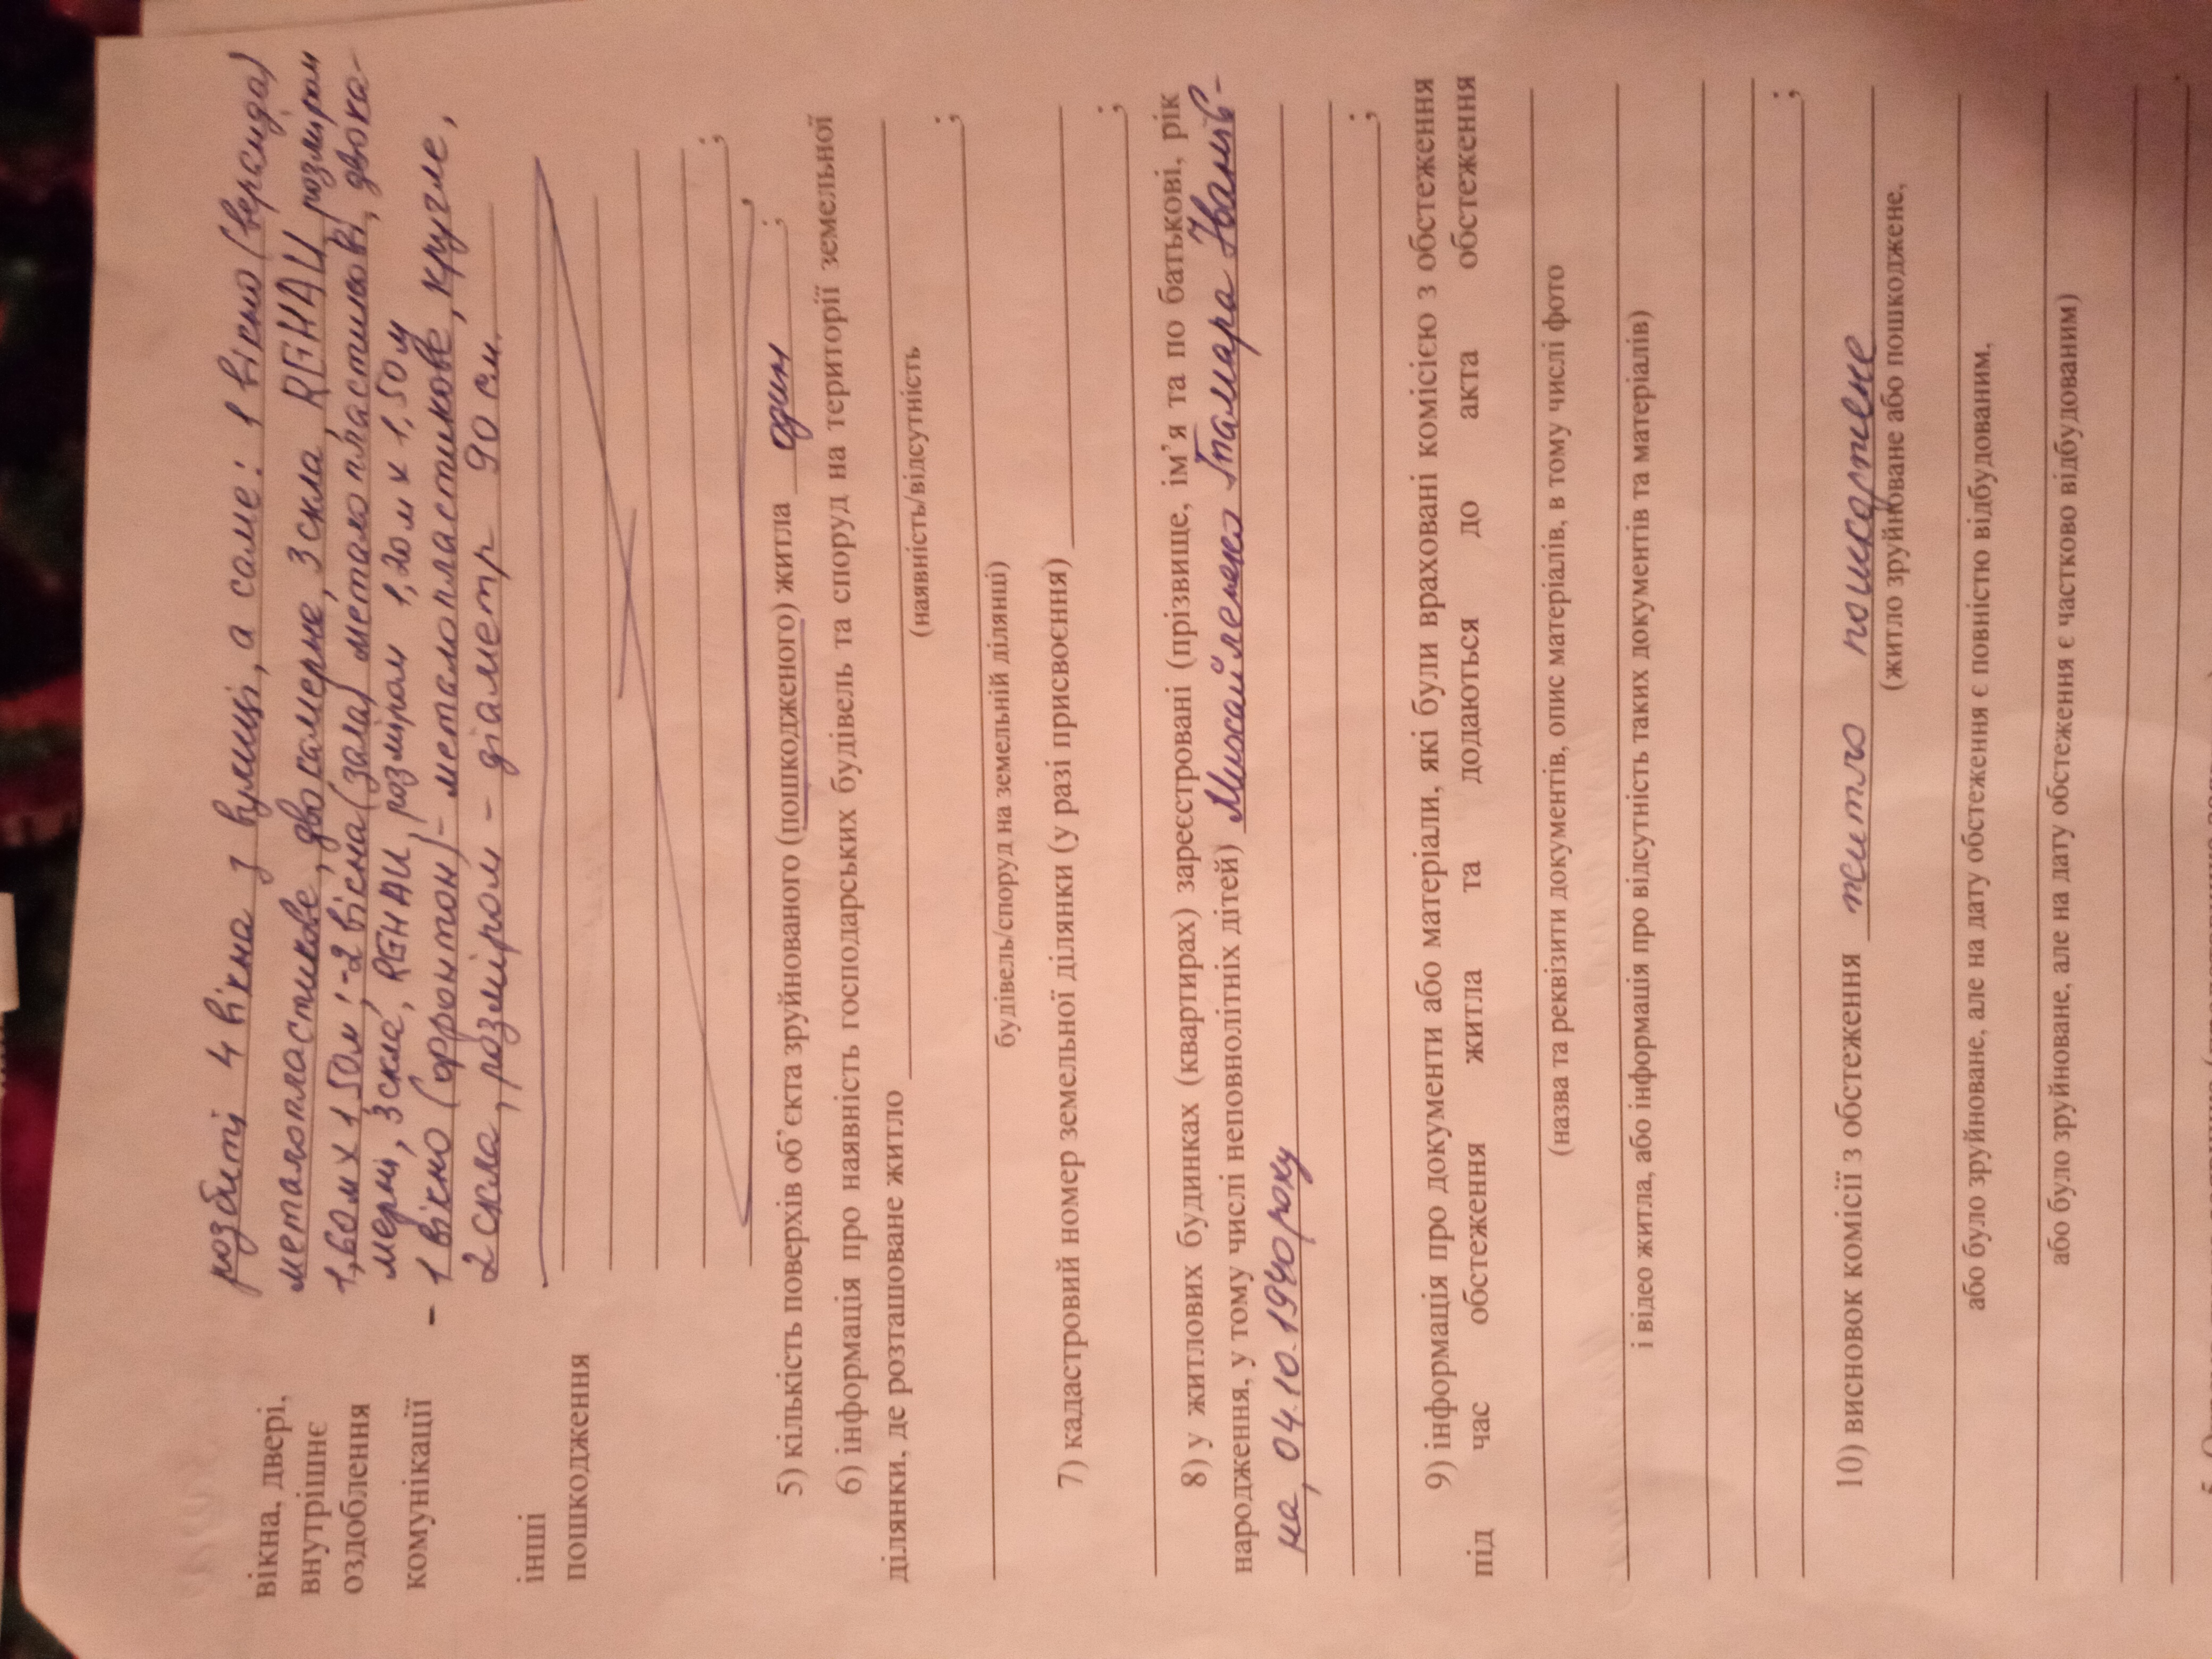 вікна, двері,
внутрішнє
оздоблення
розбиті 4 вікна з вулиці, а саме: 1 вікно (веранда)
металопластикове, двокамерне, 3 скла, REHAU розміром
1,60м х 1,50м; -2 вікна (зала) металопластикові, двока-
мерні, 3 скла, REHAU, розміром 1,20м х 1,50м
комунікації
- 1 вікно (фронтон) - металопластикове, кругле,
2 скла, розміром - діаметр 90 см.
інші
пошкодження
;
5) кількість поверхів об’єкта зруйнованого (пошкодженого) житла один ;
6) інформація про наявність господарських будівель та споруд на території земельної
ділянки, де розташоване житло
(наявність/відсутність
;
будівель/споруд на земельній ділянці)
7) кадастровий номер земельної ділянки (у разі присвоєння)
;
8) у житлових будинках (квартирах) зареєстровані (прізвище, ім’я та по батькові, рік
народження, у тому числі неповнолітніх дітей) Михайленко Тамара Іванів-
на, 04.10.1940 року
;
9) інформація про документи або матеріали, які були враховані комісією з обстеження
під час обстеження житла та додаються до акта обстеження
(назва та реквізити документів, опис матеріалів, в тому числі фото
і відео житла, або інформація про відсутність таких документів та матеріалів)
;
10) висновок комісії з обстеження житло пошкоджене
(житло зруйноване або пошкоджене,
або було зруйноване, але на дату обстеження є повністю відбудованим,
або було зруйноване, але на дату обстеження є частково відбудованим)